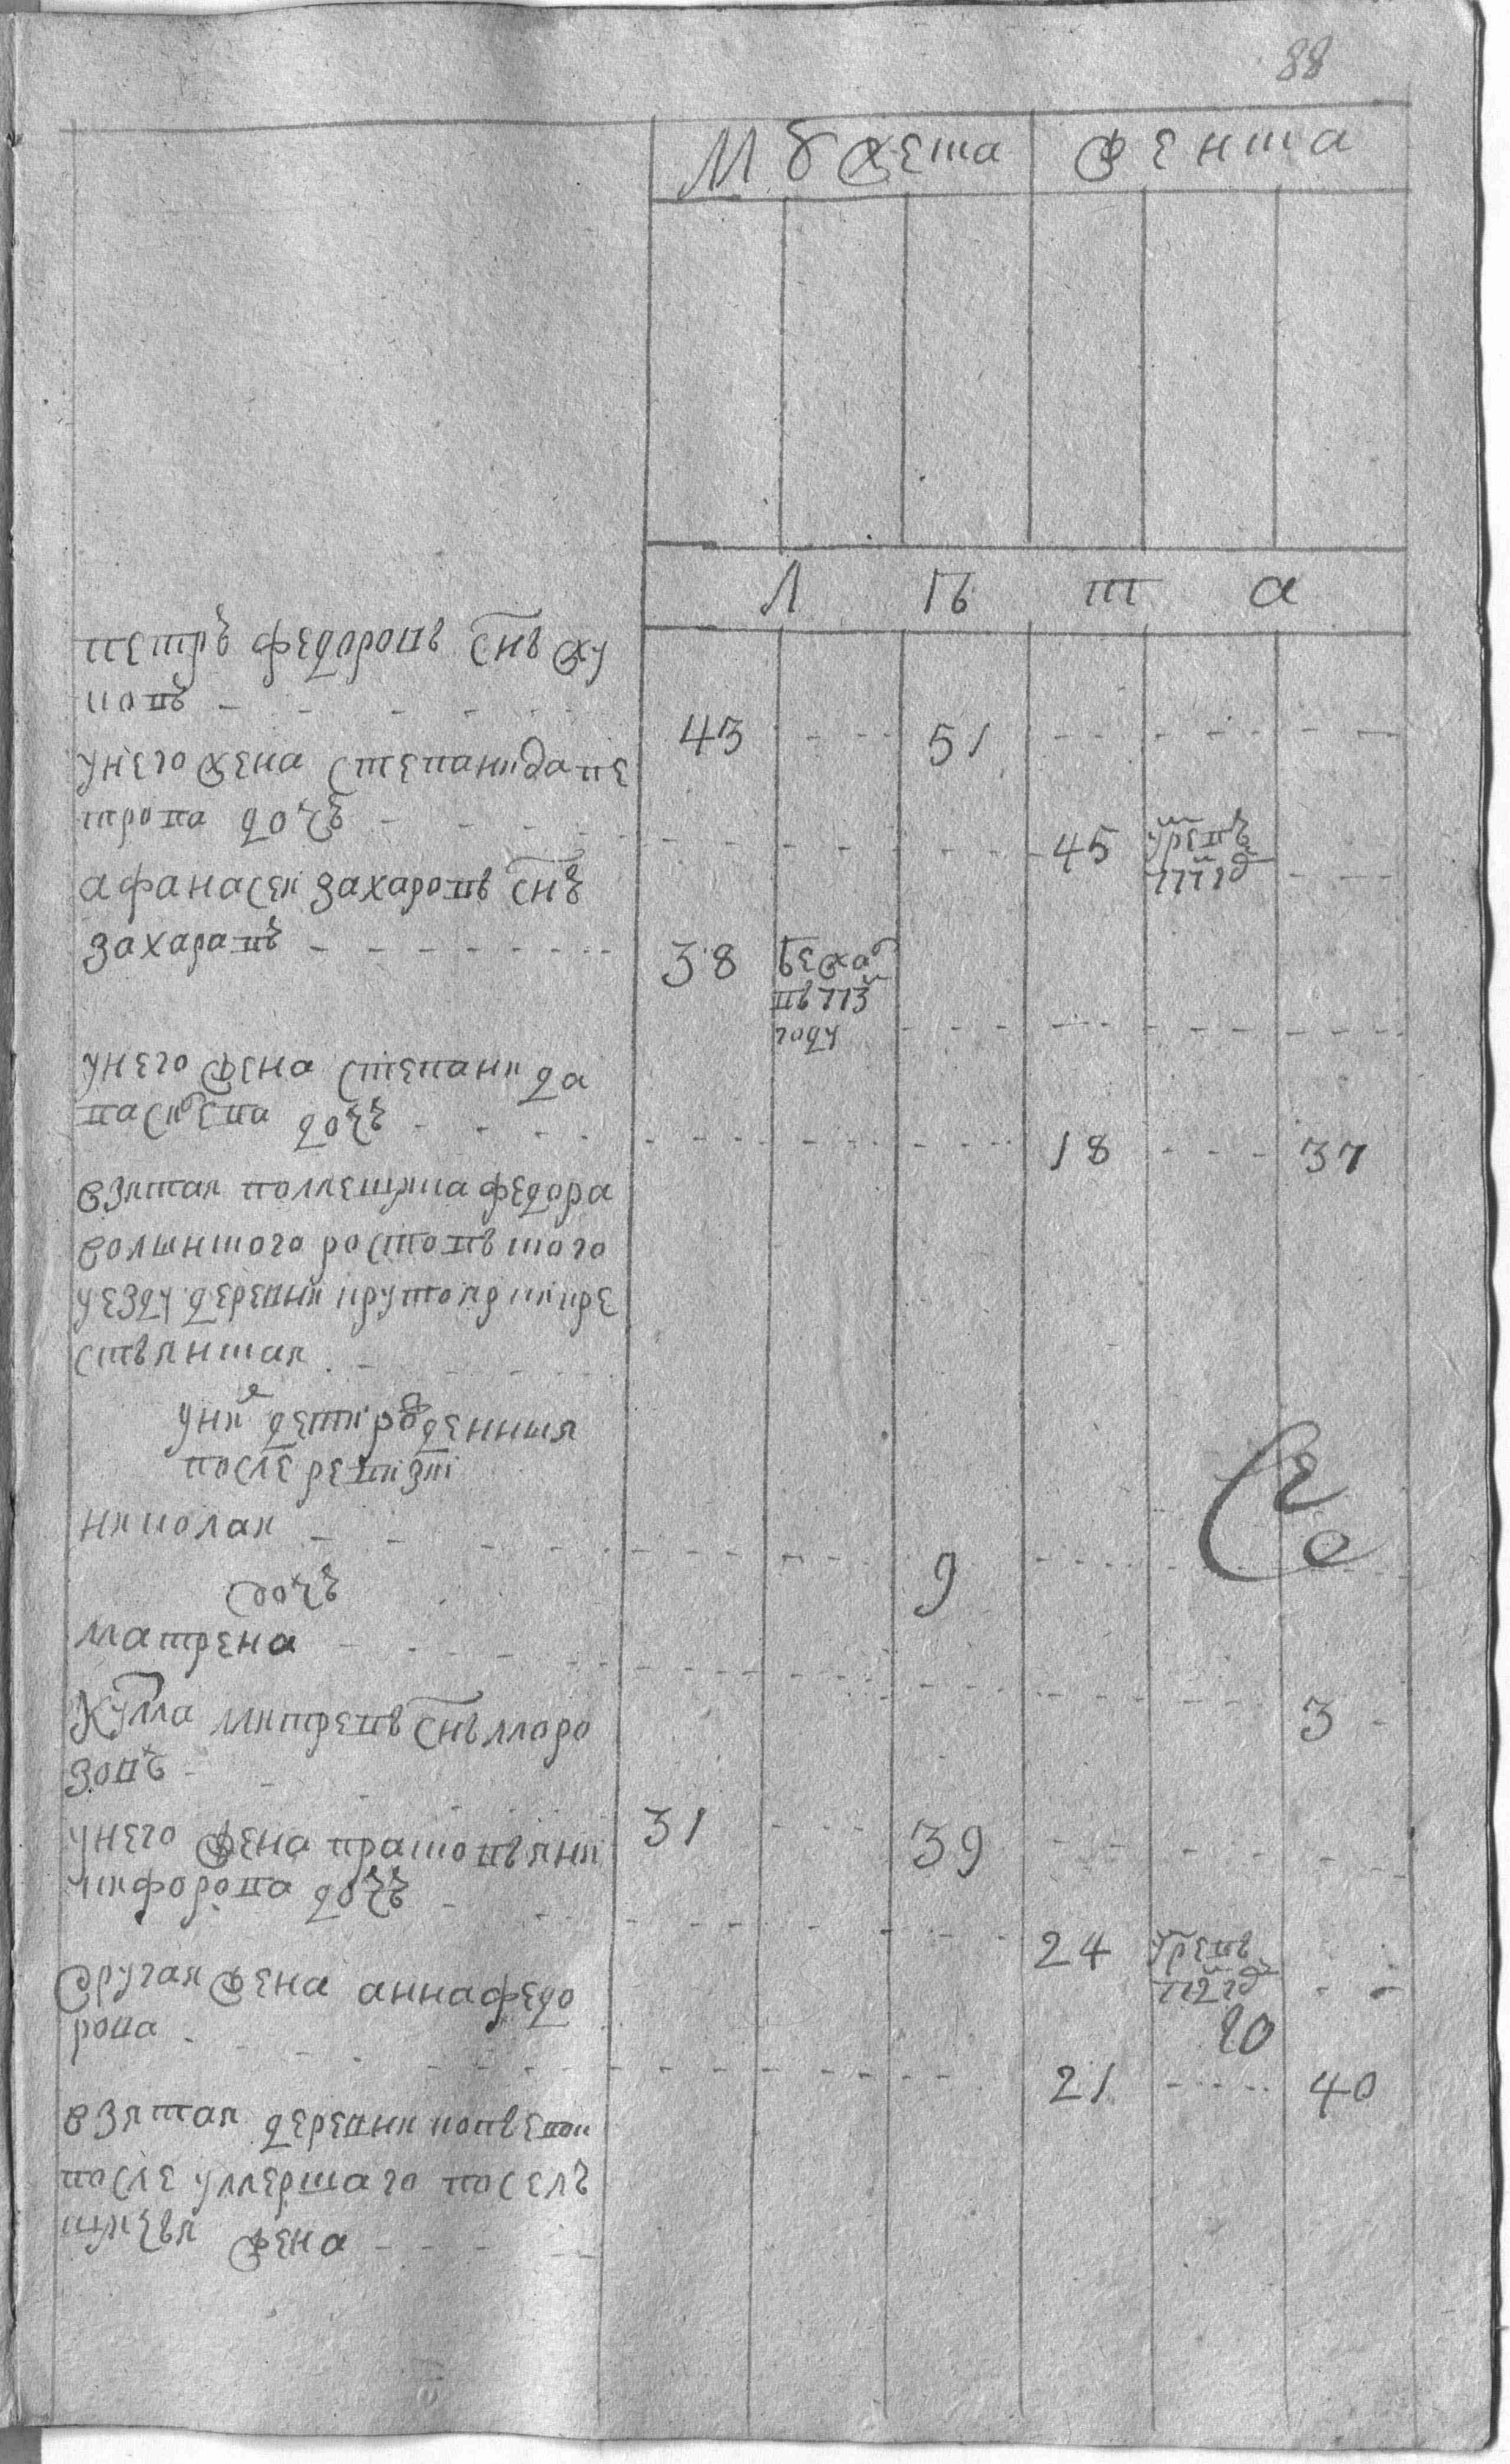 88
Мужеска Женска
Л ѣ т а
петръ федоровъ снъ жу
ковъ
43 51
унего жена степанида пе
трова дочь
45 умре въ 777 год
афанасеи захаровъ снъ
захаравъ
38 бежал
въ 773
году
унего жена степанида
васильева дочь
18 37
взятая помещика федора
ростовъскаго
уезду деревни
стьянская
унихъ дети рожденныя
после ревизи
николаи
9
дочь
матрена
3
Кузма митревъ снъ моро
зовъ
31 39
унего жена прасковья ни
кифорова дочь
24 умре въ 772 год
другая жена анна федо
рова
20
21 40
взятая деревни
после умершаго
жена